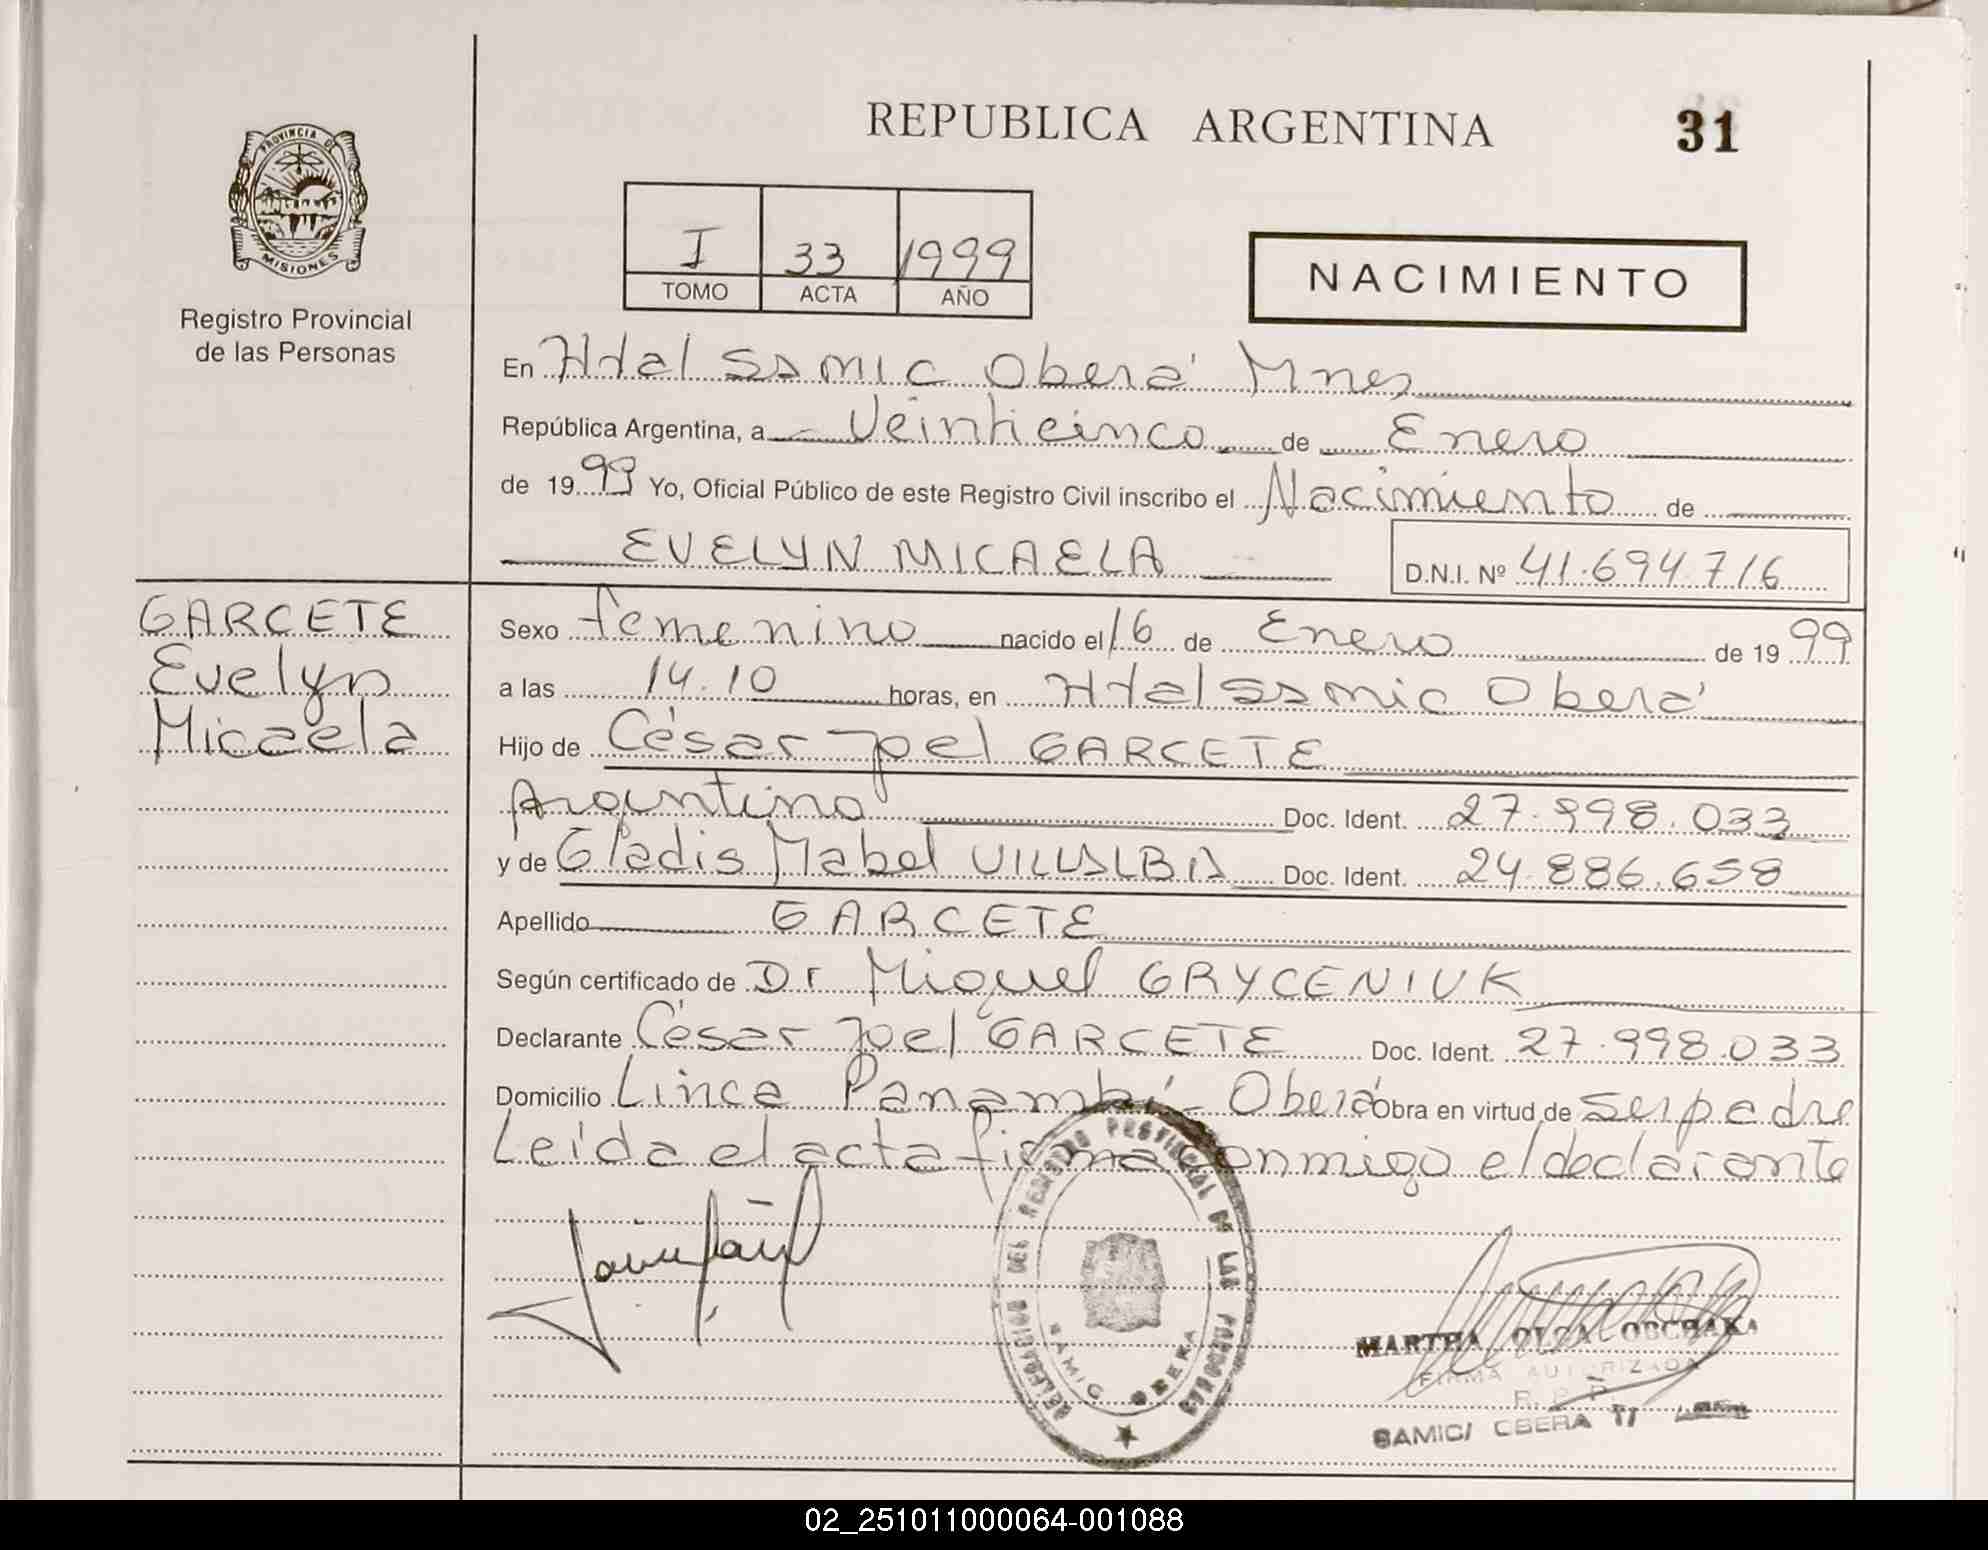 REPUBLICA ARGENTINA
31
PROVINCIA DE
MISIONES
Registro Provincial
de las Personas
I 33 1999
TOMO ACTA AÑO
NACIMIENTO
En Htal Ssmic Oberá Mnes
República Argentina, a Veinticinco de Enero
de 1999 Yo, Oficial Público de este Registro Civil inscribo el Nacimiento de
EVELYN MICAELA D.N.I. Nº 41.694.716
GARCETE
Evelyn
Micaela
Sexo femenino nacido el 16 de Enero de 1999
a las 14.10 horas, en Htal Ssmic Oberá
Hijo de César Joel GARCETE
Argentino Doc. Ident. 27.998.033
y de Gladis Mabel VILLALBA Doc. Ident. 24.886.658
Apellido GARCETE
Según certificado de Dr Miguel GRYCENIUK
Declarante César Joel GARCETE Doc. Ident. 27.998.033
Domicilio Linea Panambí - Oberá Obra en virtud de ser padre
Leída el acta firma conmigo el declarante
DELEGACION DEL REGISTRO PROVINCIAL DE LAS PERSONAS
SAMIC. OBERA
MARTHA OLGA
FIRMA AUTORIZADA
R. P. P.
SAMIC/ OBERA
02_251011000064-001088